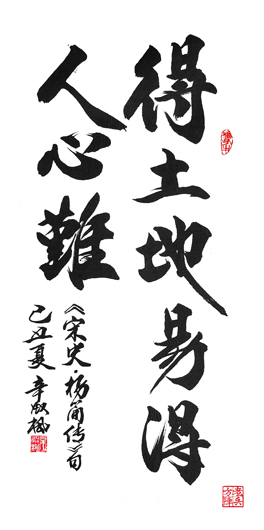 得土地易得
人心難
《宋史·杨简传》句
己丑夏 辛